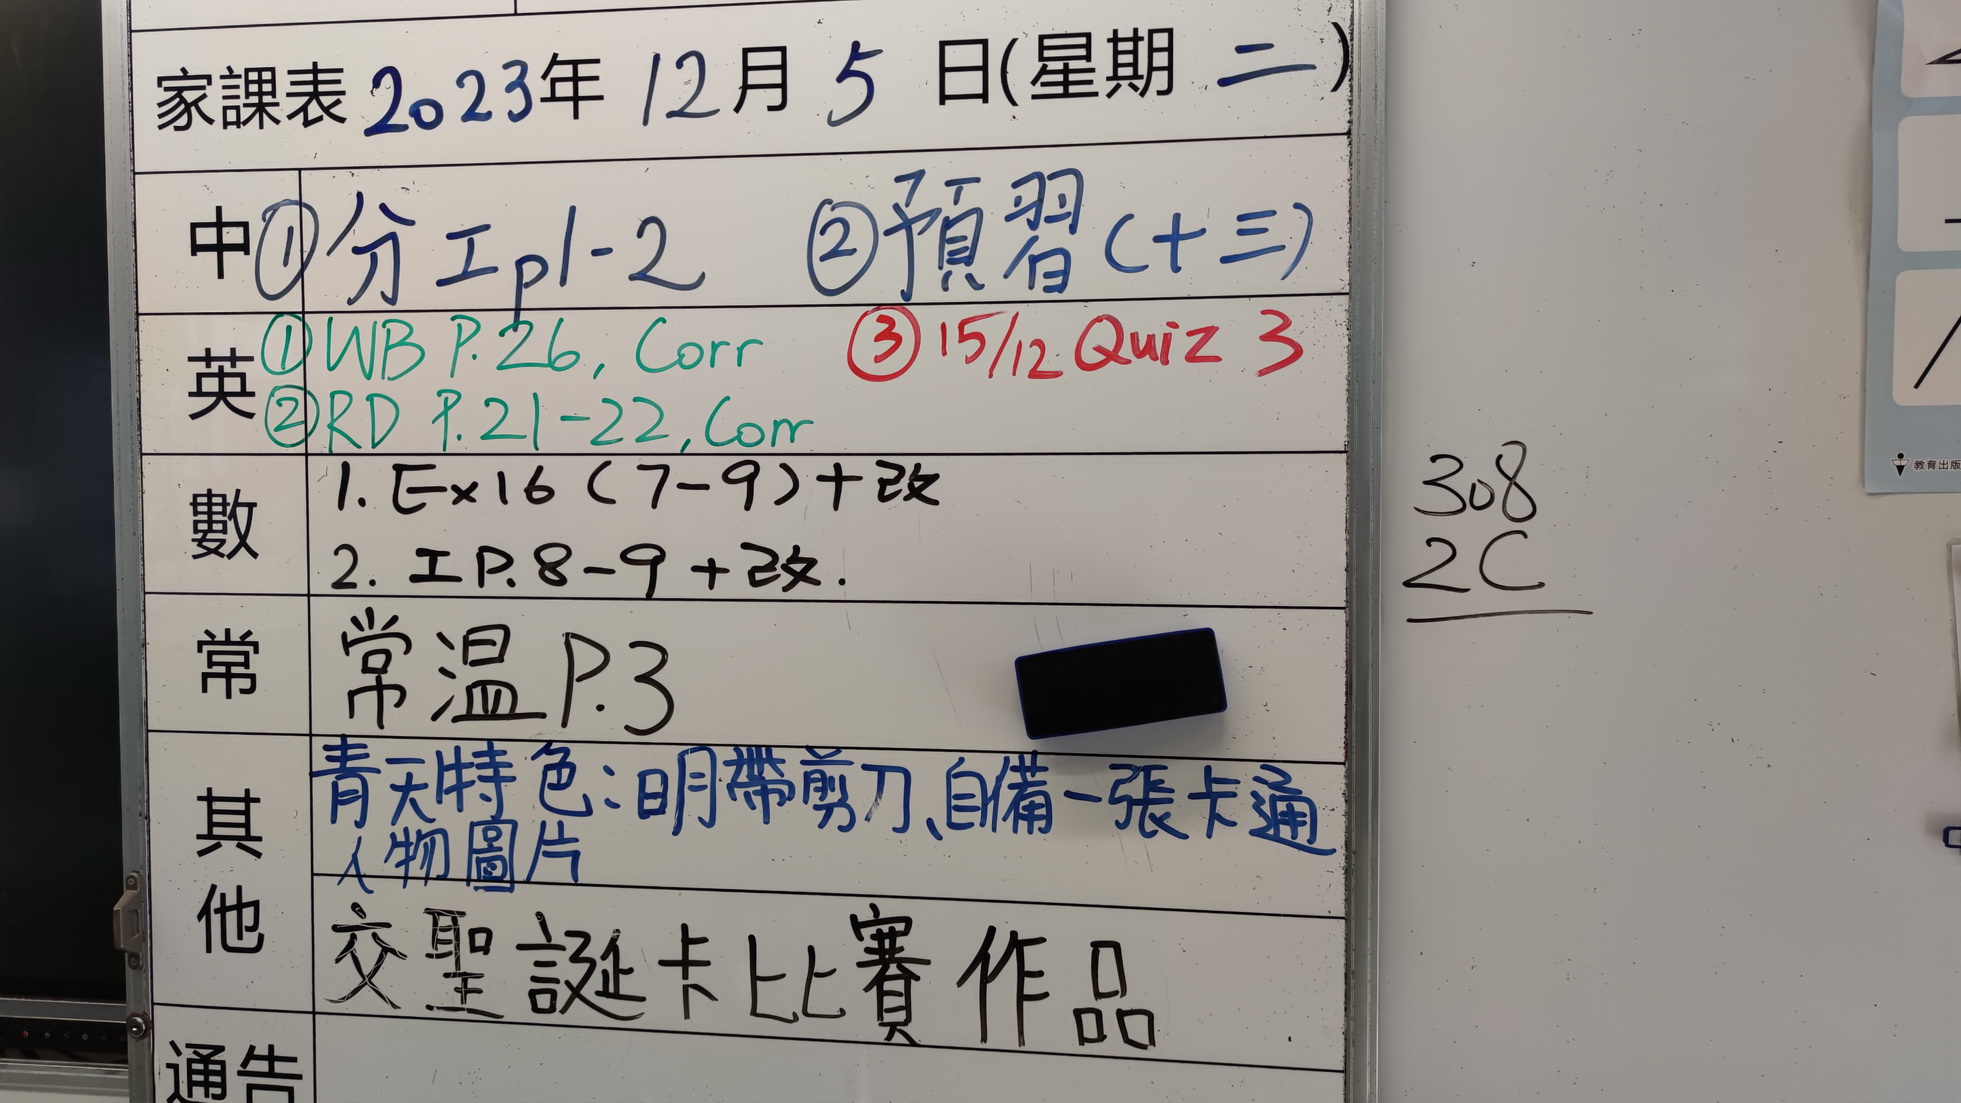 家課表 2023年 12月 5 日(星期 二)
中 ①分工p1-2 ②預習(十三)
英 ①WB P.26, Corr ③15/12 Quiz 3
②RD P.21-22, Corr
數 1. Ex16 (7-9)+改
2. 工 P.8-9 +改.
常 常温 P.3
其他 青天特色:明帶剪刀、自備一張卡通
人物圖片
交聖誕卡比賽作品
通告
308
2C
教育出版